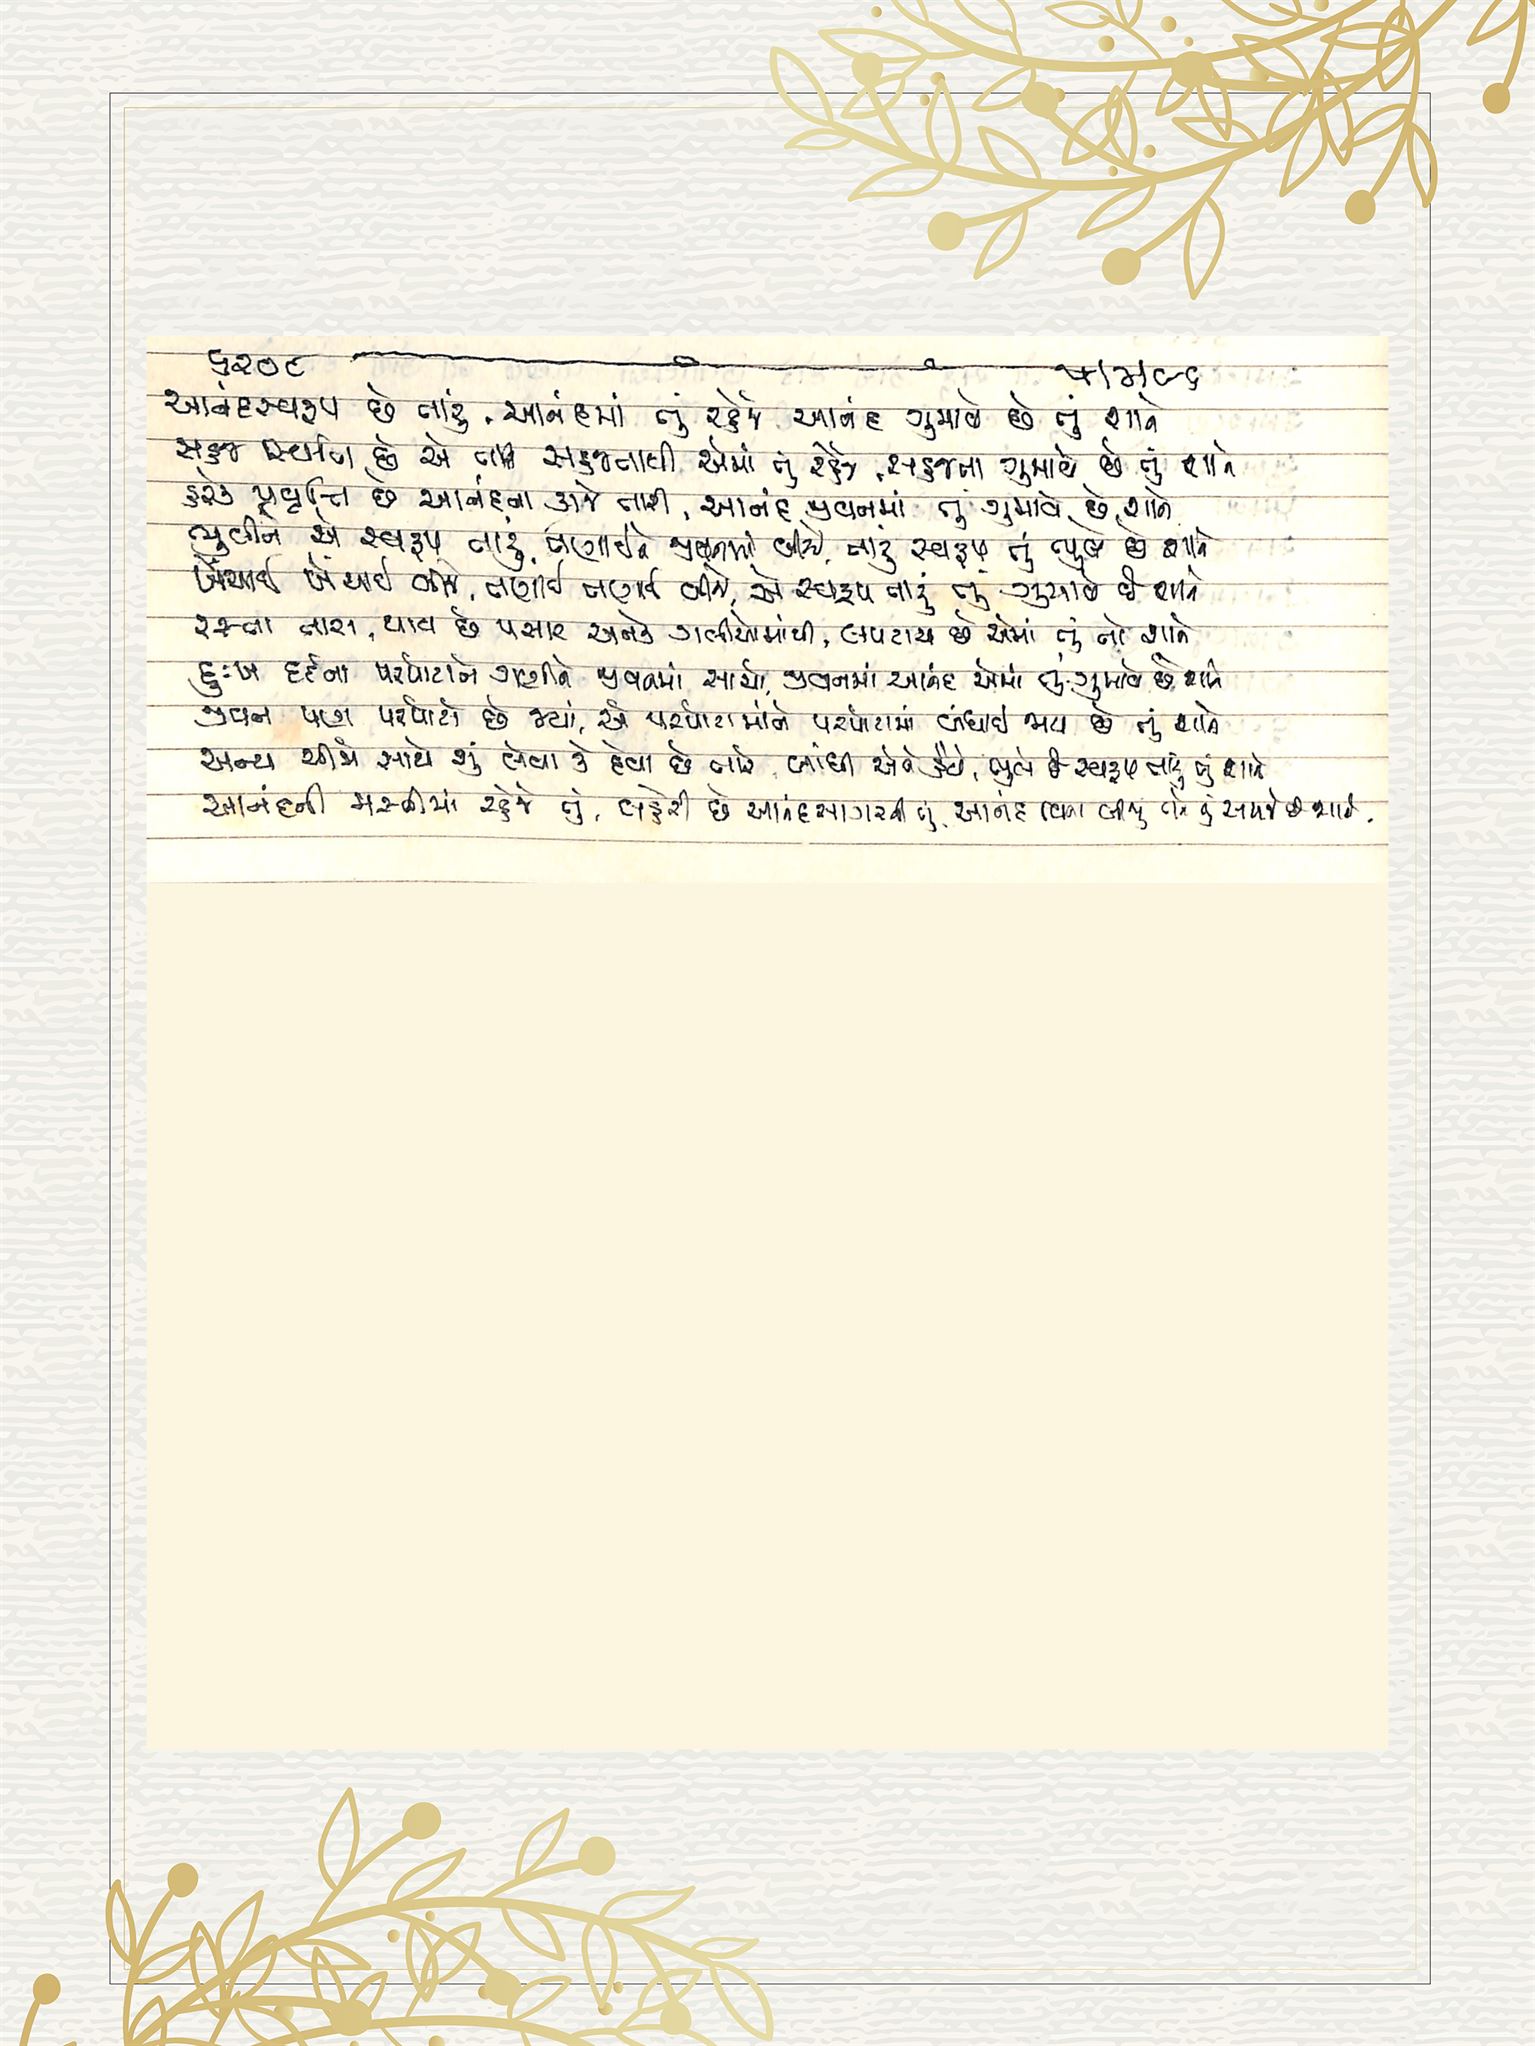 ૬૨૦૯
આનંદસ્વરૂપ છે તારું, આનંદમાં તું રહેજે આનંદ ગુમાવે છે તું શાને
સહજ સ્થિતિ છે એ તારી સહજતાથી એમાં તું રહેજે, સહજતા ગુમાવે છે તું શાને
દરેક પ્રવૃત્તિ છે આનંદના કાજે તારી, આનંદ જીવનમાં તું ગુમાવે છે શાને
ભુલીને એ સ્વરૂપ તારું, તણાઈને જીવનમાં બીજે, તારું સ્વરૂપ તું ભુલે છે શાને
ખેંચાઈ ખેંચાઈ બીજે, તણાઈ તણાઈ બીજે, એ સ્વરૂપ તારું તું ગુમાવે છે શાને
રસ્તા તારા, થાય છે પસાર અનેક ગલીઓમાંથી, લપટાય છે એમાં તું તો શાને
દુઃખ દર્દના પરપોટાને ગણીને જીવનમાં સાચા, જીવનમાં આનંદ એમાં તું ગુમાવે છે શાને
જીવન પણ પરપોટો છે જ્યાં, એ પરપોટામાંને પરપોટામાં બંધાઈ જાય છે તું શાને
અન્ય ચીજો સાથે શું લેવા કે દેવા છે તારે, બાંધી એને હૈયે, ભુલે છે સ્વરૂપ તારું તું શાને
આનંદની મસ્તીમાં રહેજે તું, લહેરી છે આનંદસાગરની તું, આનંદ વિના બીજું તને તું સમજે છે શાને.